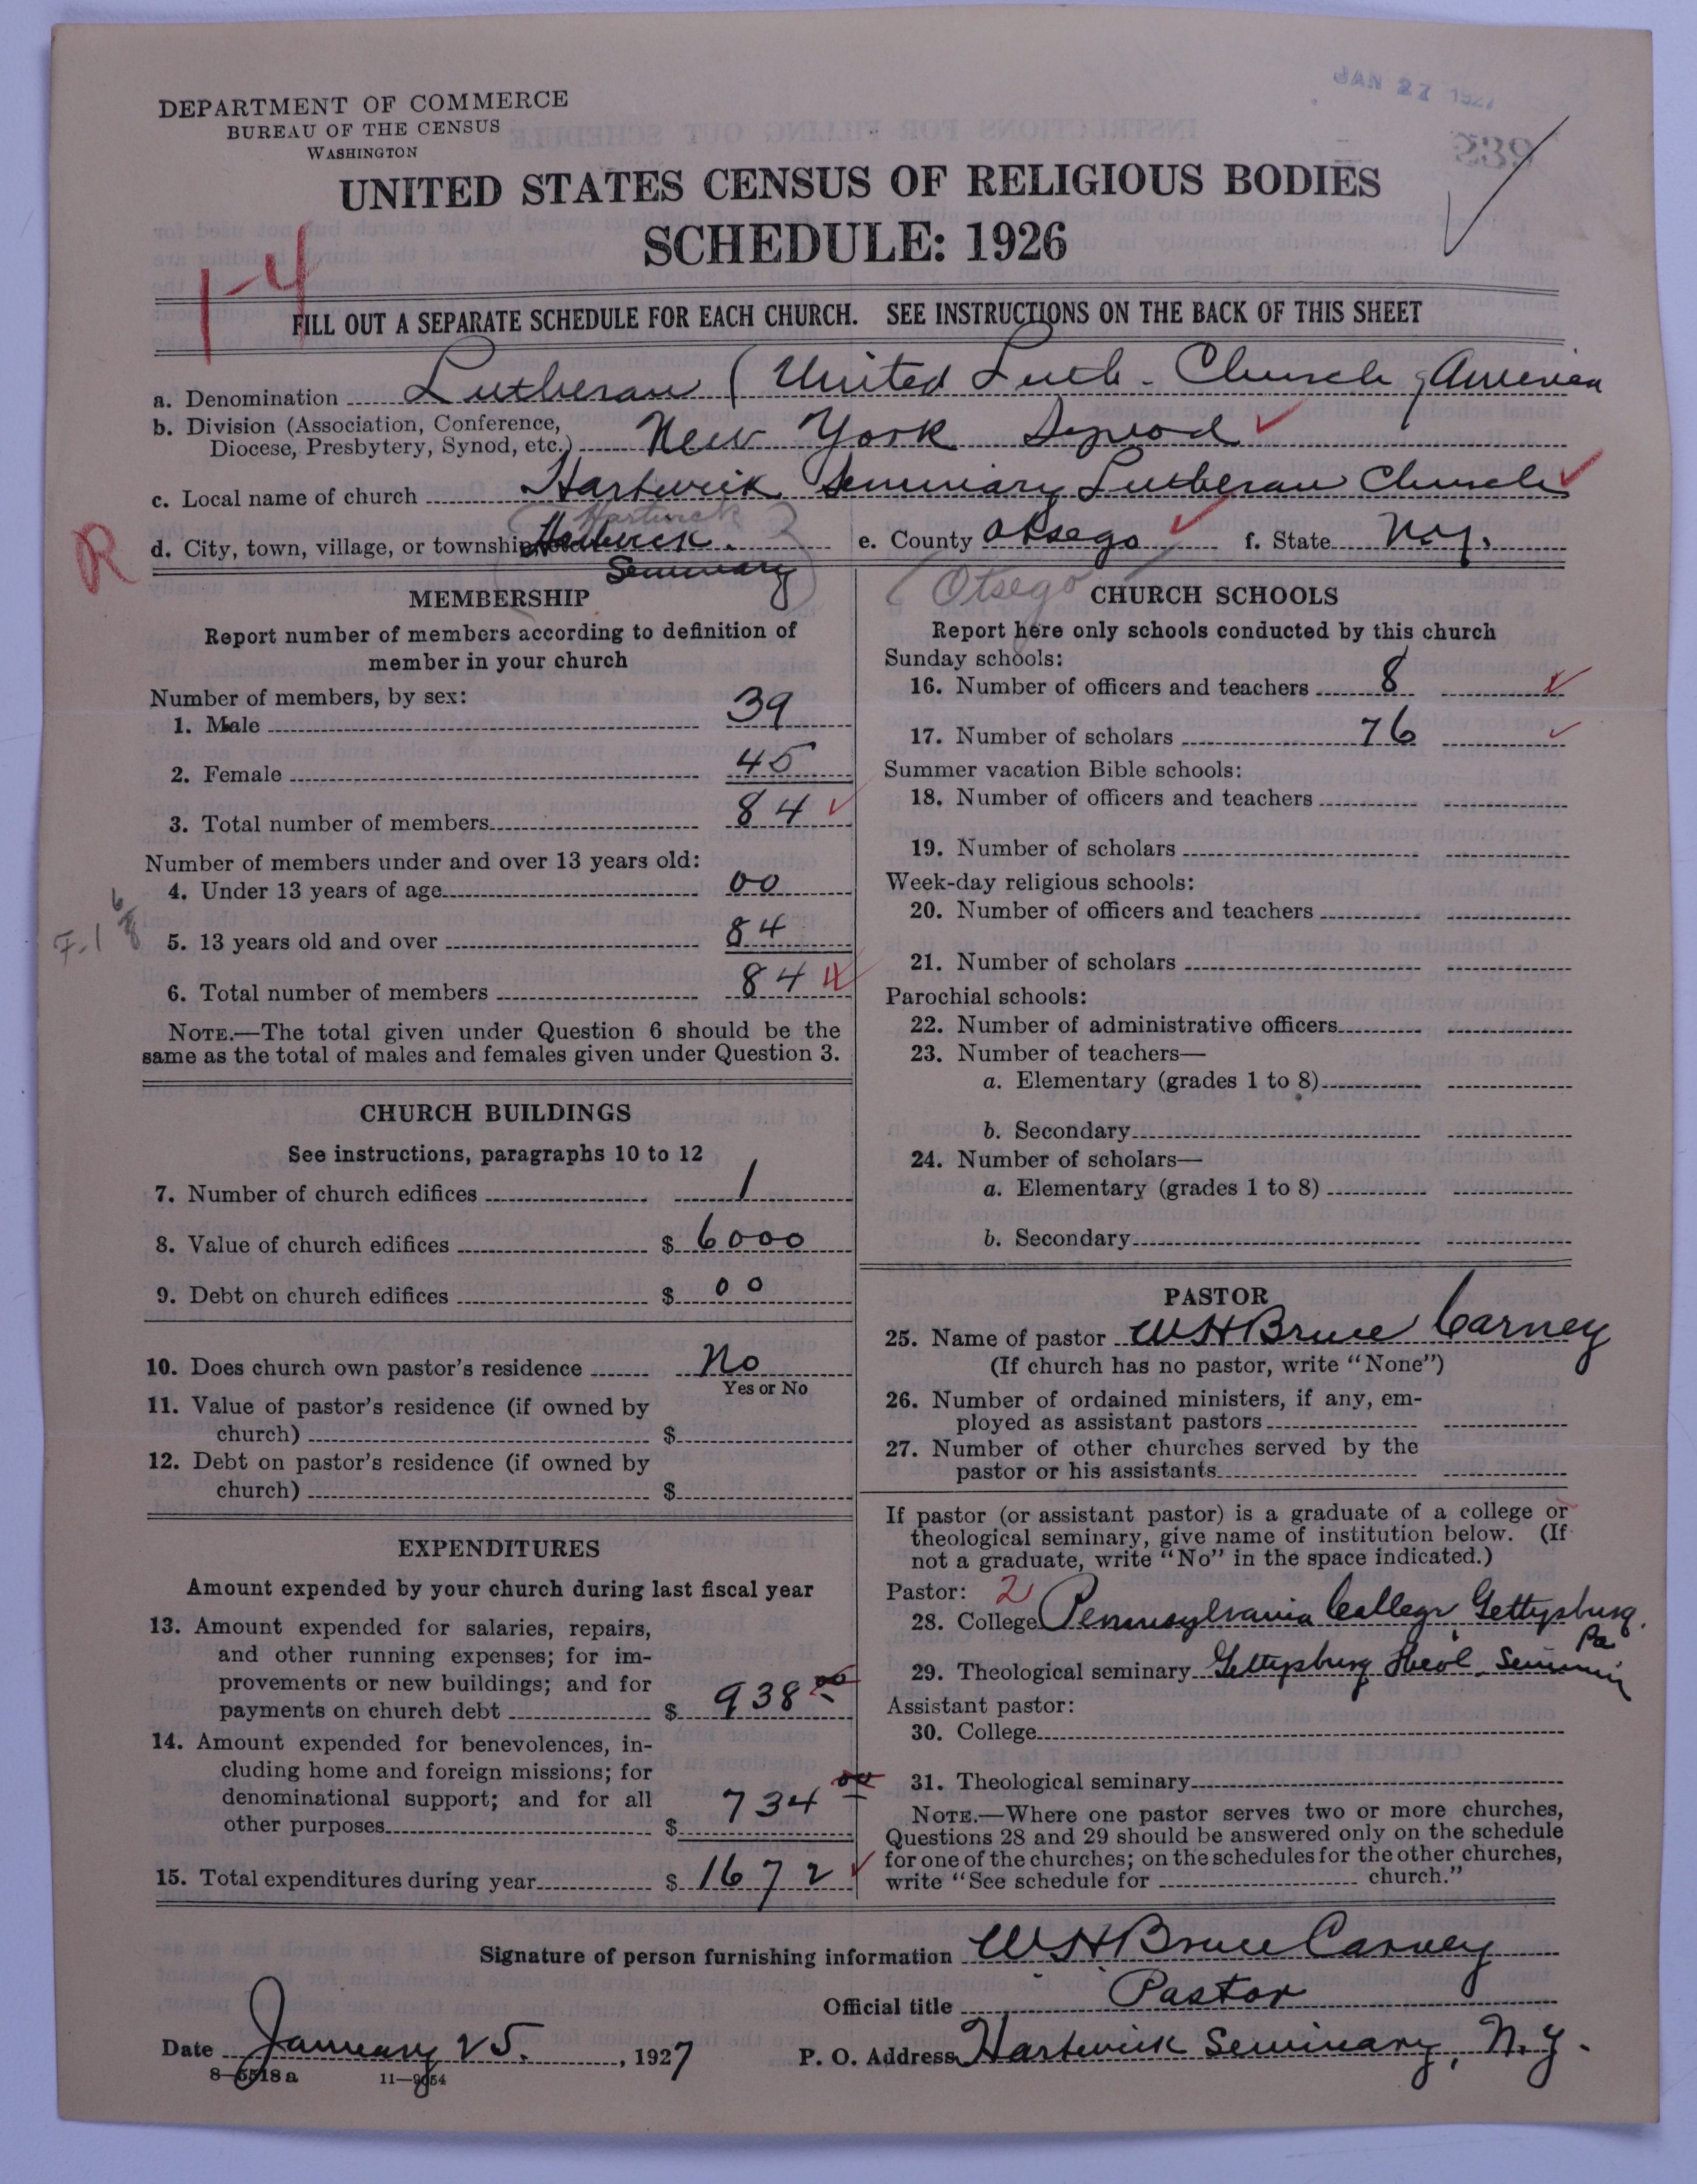 JAN 27 1927
DEPARTMENT OF COMMERCE
BUREAU OF THE CENSUS
WASHINGTON
239
UNITED STATES CENSUS OF RELIGIOUS BODIES
SCHEDULE: 1926
1-4
FILL OUT A SEPARATE SCHEDULE FOR EACH CHURCH. SEE INSTRUCTIONS ON THE BACK OF THIS SHEET
a. Denomination Lutheran (United Luth. Church, America
b. Division (Association, Conference,
Diocese, Presbytery, Synod, etc.) New York Synod
c. Local name of church Hartwick Seminary Lutheran Church
(Hartwick
R
d. City, town, village, or township Hartwick. e. County Otsego f. State N.Y.
Seminary)
(Otsego
MEMBERSHIP
Report number of members according to definition of
member in your church
Number of members, by sex:
1. Male 39
2. Female 45
3. Total number of members 84
Number of members under and over 13 years old:
4. Under 13 years of age 00
F-1 6/8
5. 13 years old and over 84
6. Total number of members 84
NOTE.—The total given under Question 6 should be the
same as the total of males and females given under Question 3.
CHURCH BUILDINGS
See instructions, paragraphs 10 to 12
7. Number of church edifices 1
8. Value of church edifices $ 6000
9. Debt on church edifices $ 00
10. Does church own pastor's residence No
Yes or No
11. Value of pastor's residence (if owned by
church) $
12. Debt on pastor's residence (if owned by
church) $
EXPENDITURES
Amount expended by your church during last fiscal year
13. Amount expended for salaries, repairs,
and other running expenses; for im-
provements or new buildings; and for
payments on church debt $ 938 00
14. Amount expended for benevolences, in-
cluding home and foreign missions; for
denominational support; and for all
other purposes $ 734 00
15. Total expenditures during year $ 1672
CHURCH SCHOOLS
Report here only schools conducted by this church
Sunday schools:
16. Number of officers and teachers 8
17. Number of scholars 76
Summer vacation Bible schools:
18. Number of officers and teachers
19. Number of scholars
Week-day religious schools:
20. Number of officers and teachers
21. Number of scholars
Parochial schools:
22. Number of administrative officers
23. Number of teachers—
a. Elementary (grades 1 to 8)
b. Secondary
24. Number of scholars—
a. Elementary (grades 1 to 8)
b. Secondary
PASTOR
25. Name of pastor W H Bruce Carney
(If church has no pastor, write "None")
26. Number of ordained ministers, if any, em-
ployed as assistant pastors
27. Number of other churches served by the
pastor or his assistants
If pastor (or assistant pastor) is a graduate of a college or
theological seminary, give name of institution below. (If
not a graduate, write "No" in the space indicated.)
Pastor: 2
28. College Pennsylvania College, Gettysburg.
Pa
29. Theological seminary Gettysburg Theol. Semin
Assistant pastor:
30. College
31. Theological seminary
NOTE.—Where one pastor serves two or more churches,
Questions 28 and 29 should be answered only on the schedule
for one of the churches; on the schedules for the other churches,
write "See schedule for church."
Signature of person furnishing information W H Bruce Carney
Official title Pastor
Date January 25. , 1927 P. O. Address Hartwick Seminary, N.Y.
8-5518a 11-9054